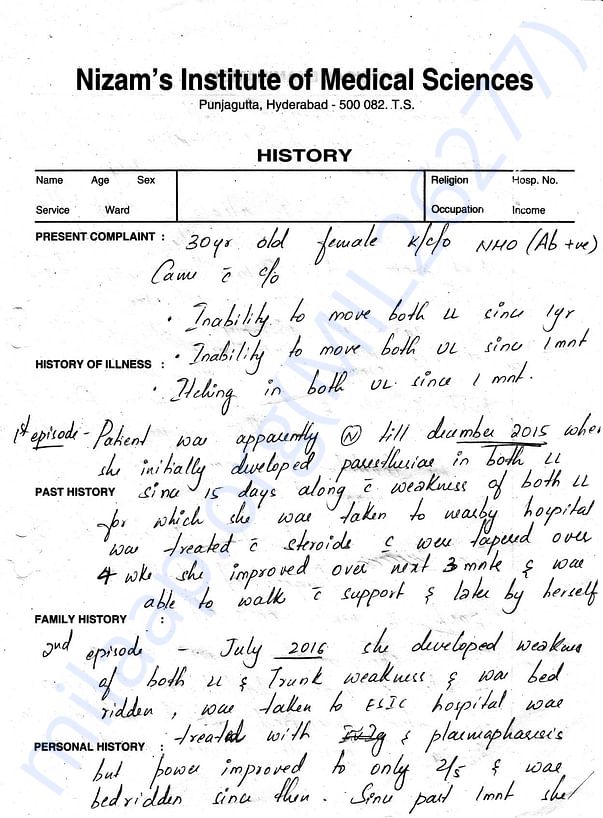 Nizam's Institute of Medical Sciences
Punjagutta, Hyderabad - 500 082. T.S.
HISTORY
Name Age Sex Religion Hosp. No.
Service Ward Occupation Income
PRESENT COMPLAINT : 30yr old female K/c/o NMO (Ab +ve)
Came c̄ c/o
• Inability to move both LL since 1yr
• Inability to move both UL since 1 mnt
HISTORY OF ILLNESS :
• Itching in both UL since 1 mnt.
1st episode - Patient was apparently (N) till december 2015 when
she initially developed paresthesiae in both LL
PAST HISTORY since 15 days along c̄ weakness of both LL
for which she was taken to nearby hospital
was treated c̄ steroids c̄ were tapered over
4 wks she improved over next 3 mnts & was
able to walk c̄ support & later by herself
FAMILY HISTORY :
2nd episode - July 2016 she developed weakness
of both LL & Trunk weakness & was bed
ridden, was taken to ESIC hospital was
treated with & plasmapharesis
PERSONAL HISTORY :
but power improved to only 2/5 & was
bedridden since then. Since past 1mnt she
milaap.org(MIL26277)